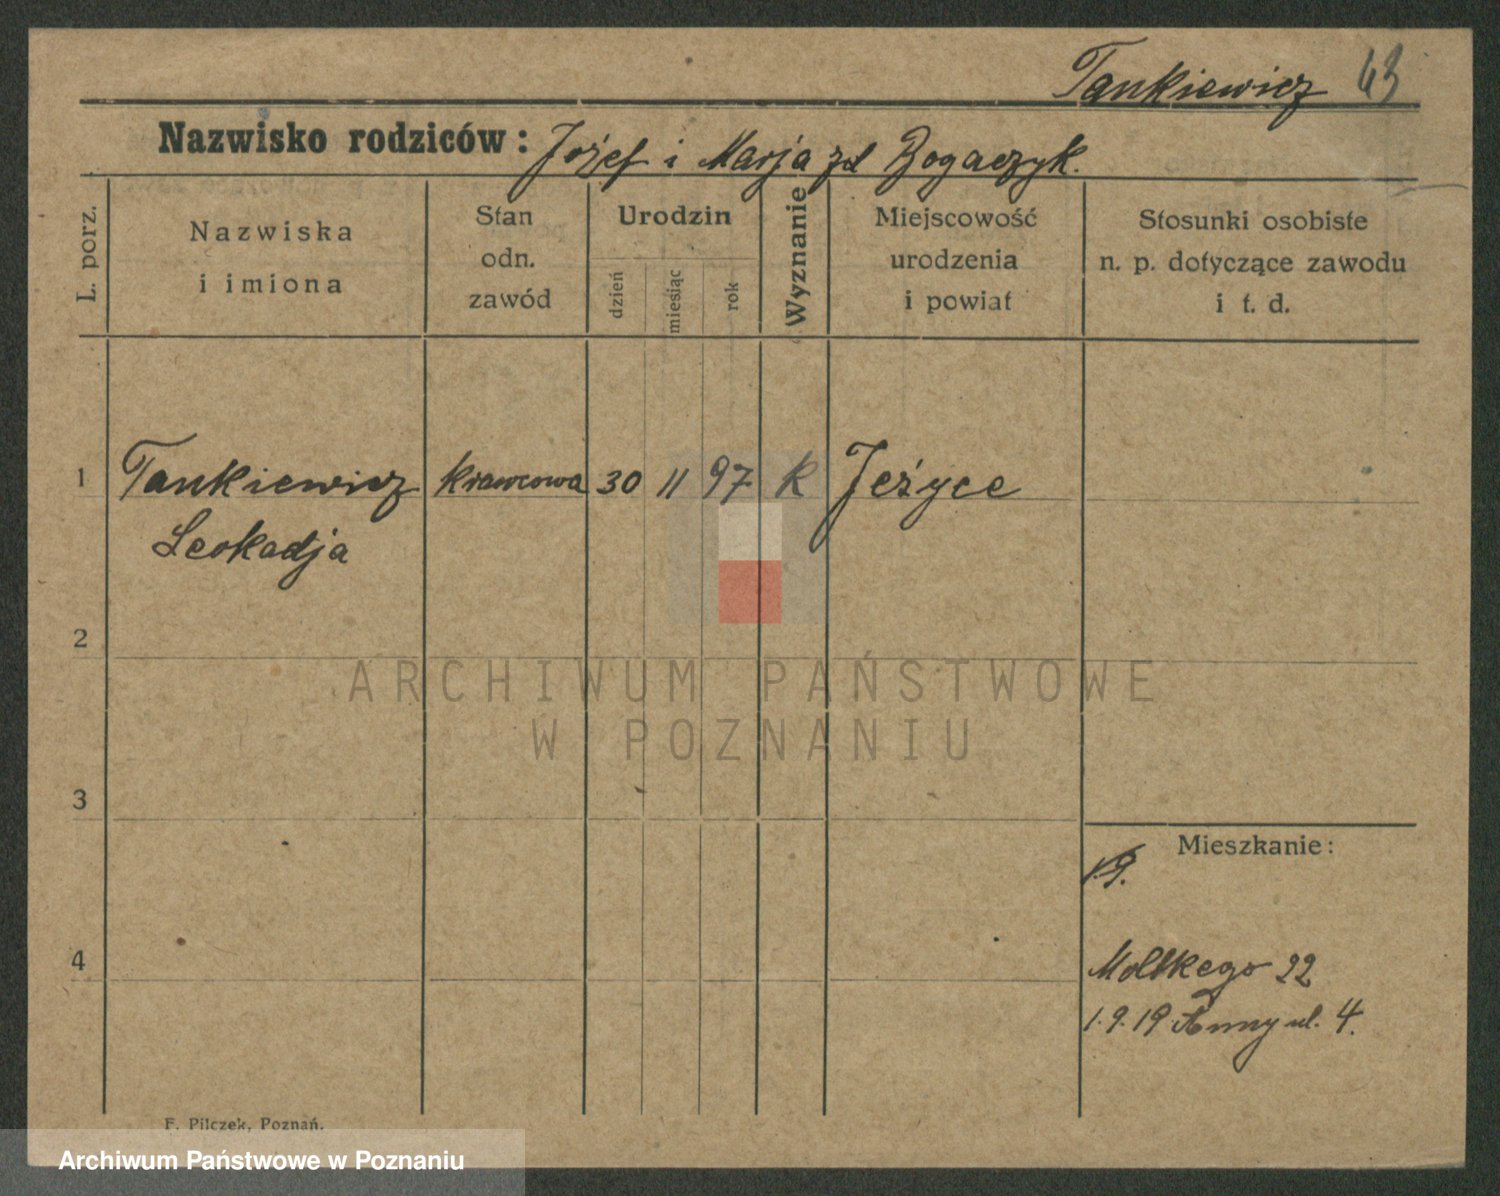 Tankiewicz 43
Nazwisko rodziców: Józef i Marja zd Bogaczyk.
L. porz.
Nazwiska
i imiona
Stan
odn.
zawód
Urodzin
dzień
miesiąc
rok
Wyznanie
Miejscowość
urodzenia
i powiat
Stosunki osobiste
n. p. dotyczące zawodu
i t. d.
1 Tankiewicz krawcowa 30 11 97 K Jeżyce
Leokadja
2
ARCHIWUM PAŃSTWOWE
W POZNANIU
3
Mieszkanie:
1.9.
4
Moltkego 22
1.9.19 Anny ul. 4.
F. Pilczek, Poznań.
Archiwum Państwowe w Poznaniu